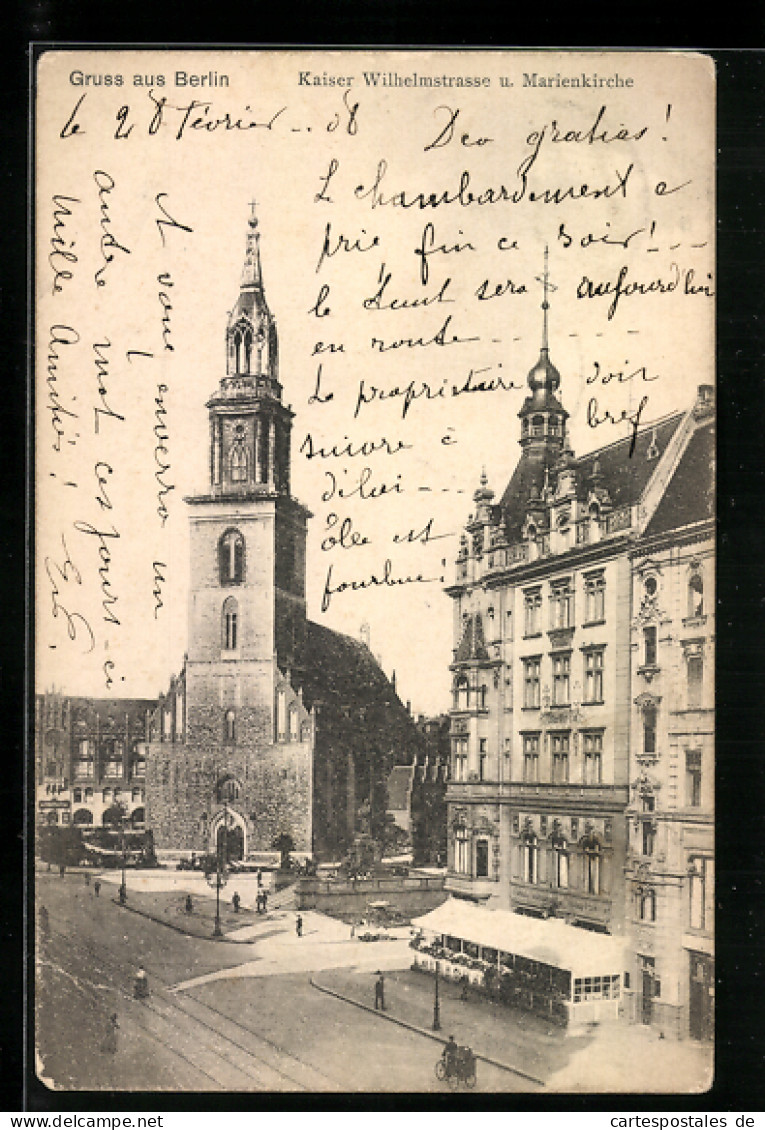 Gruss aus Berlin
Kaiser Wilhelmstrasse u. Marienkirche
le 28 Février .. 08
Deo gratias!
L'chambardement a
pris fin ce soir! ...
le sera aujourd'hui
en route ...
Le propriétaire doit
suivre à bref
délai ...
est
fourbue!
A vous enverra un
andre mot ces jours-ci
mille Amitiés!
carte-postales.de